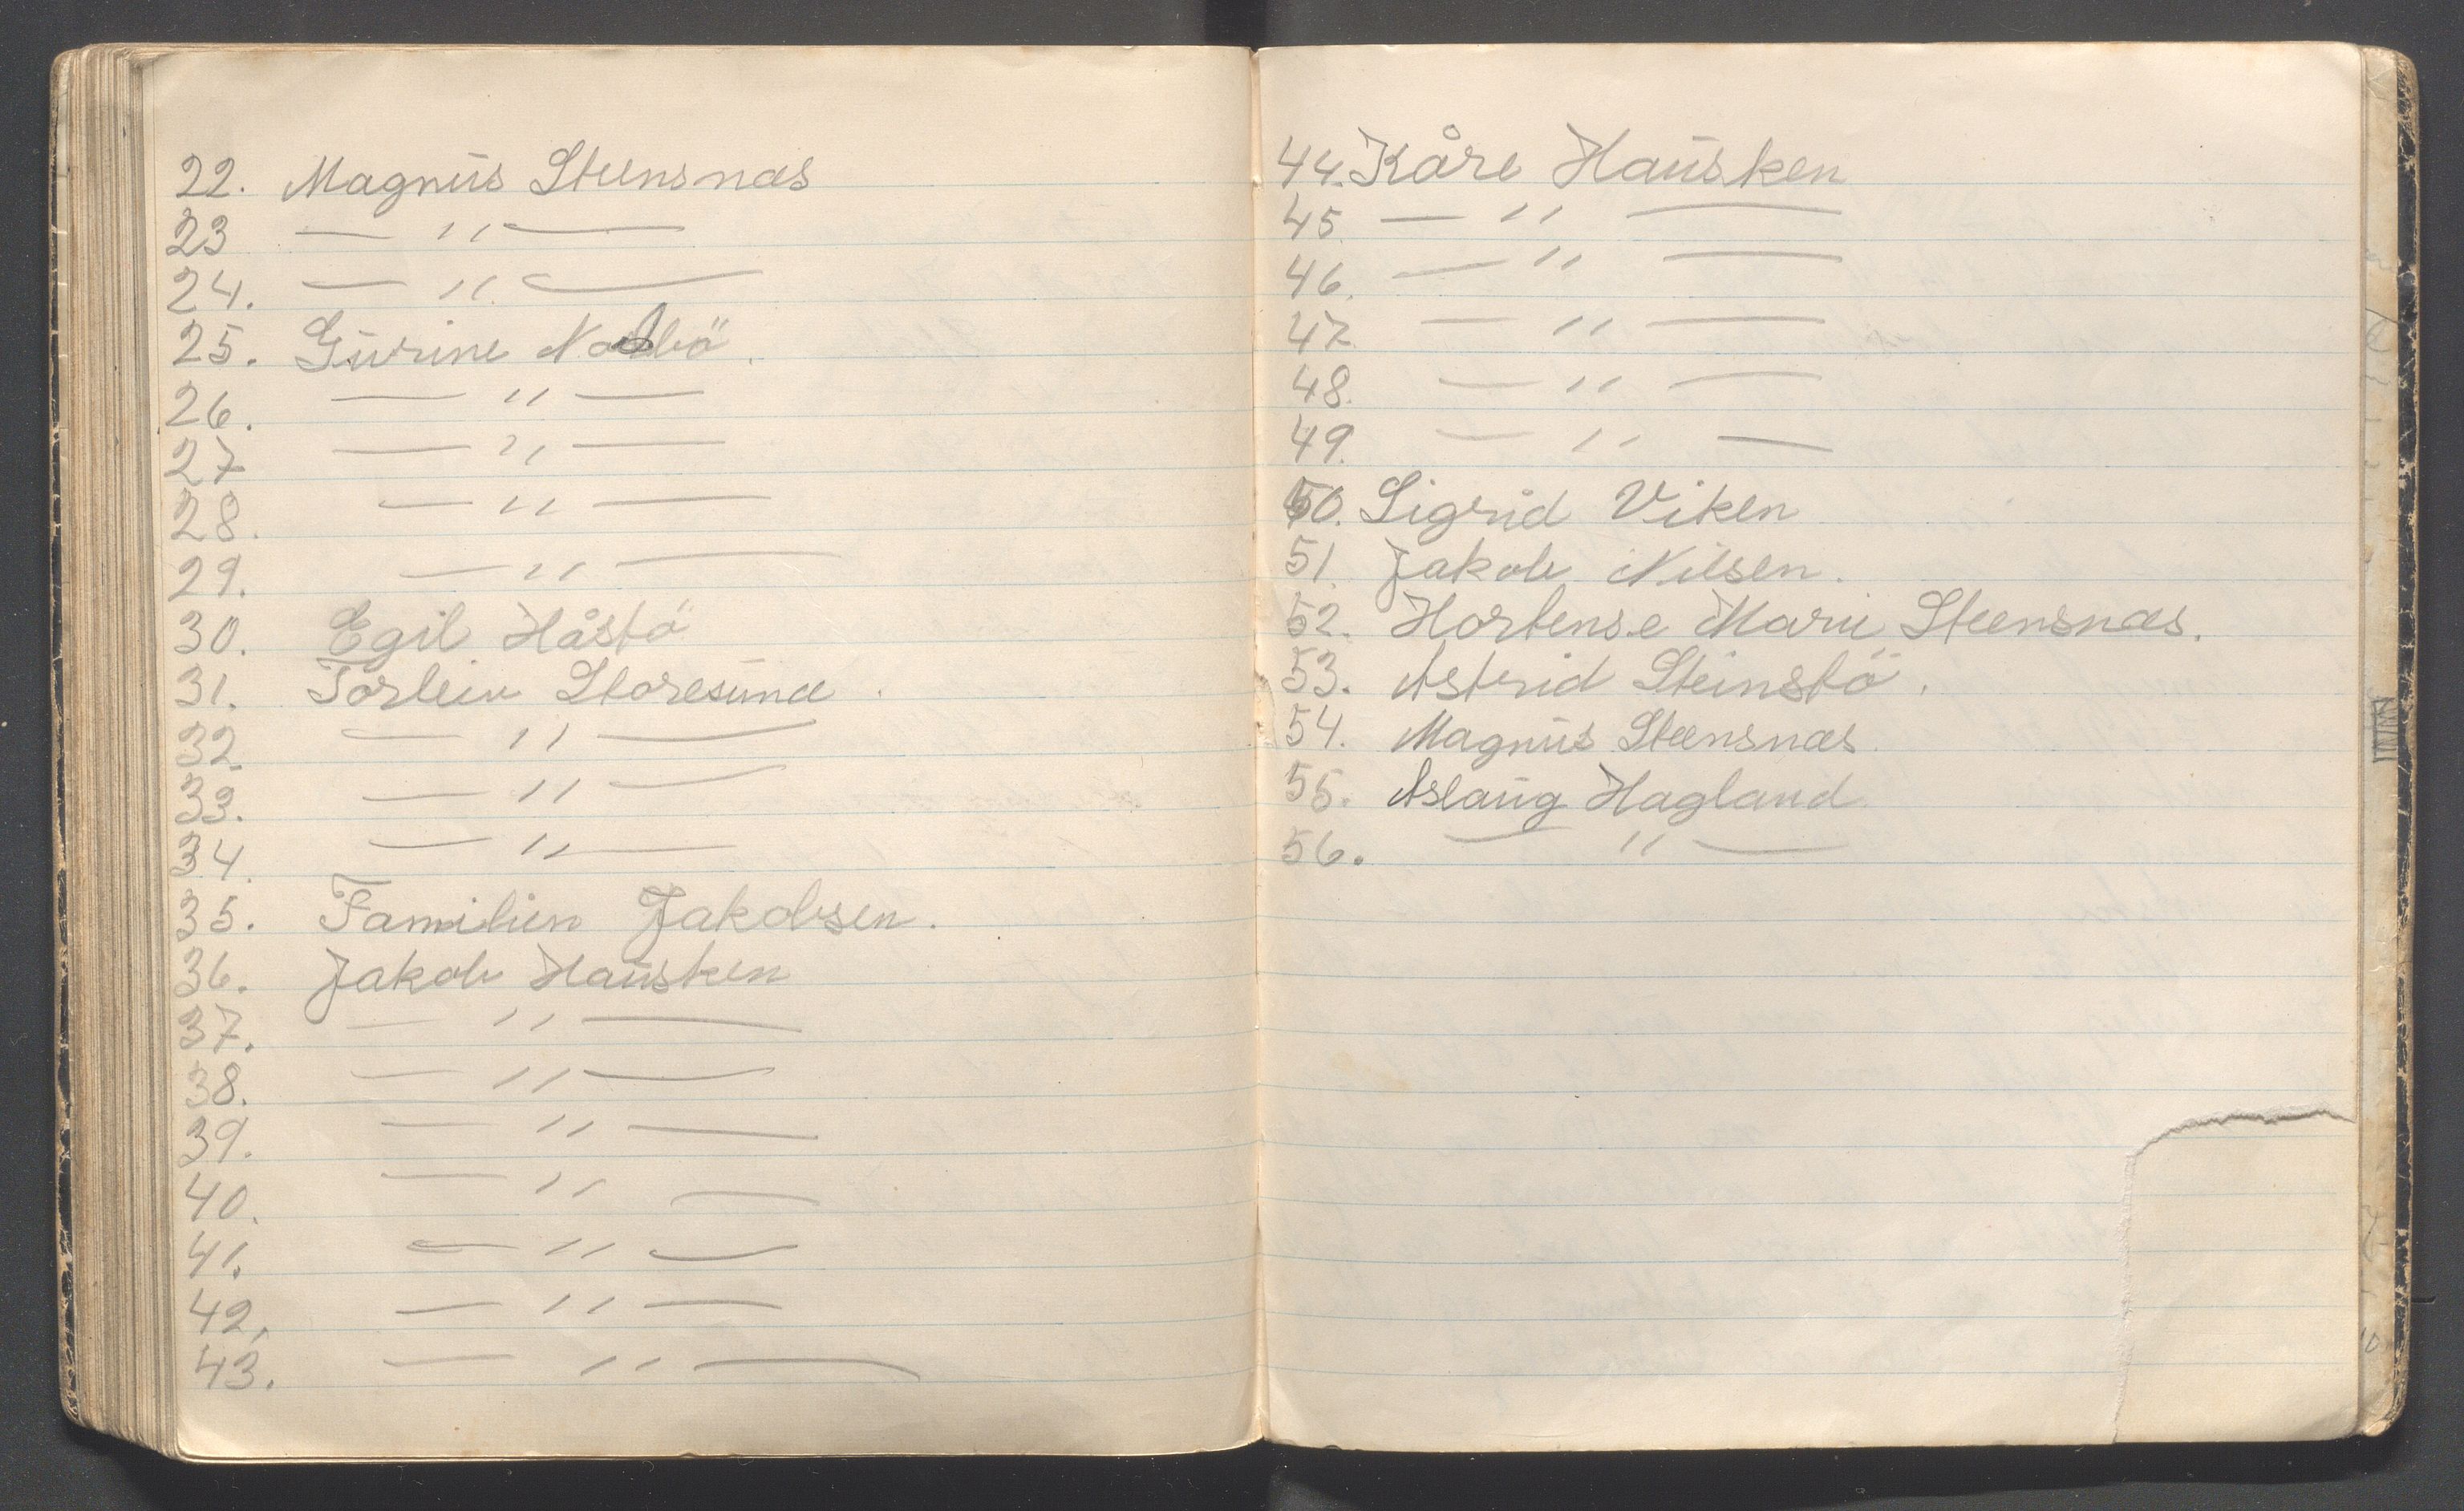 22. Magnus Steensnæs
23 — " —
24. — " —
25. Gurine Nosbö.
26. — " —
27 — " —
28. — " —
29. — " —
30. Egil Håstö
31. Torleiv Storesund.
32. — " —
33. — " —
34. — " —
35. Familien Jakobsen.
36. Jakob Hausken
37. — " —
38. — " —
39. — " —
40. — " —
41. — " —
42. — " —
43. — " —
44. Kåre Hausken
45. — " —
46. — " —
47. — " —
48. — " —
49. — " —
50. Sigrid Viken
51. Jakob Nilsen.
52. Hortense Marie Steensnæs.
53. Astrid Steinstö.
54. Magnus Steensnæs.
55. Aslaug Hagland.
56. — " —